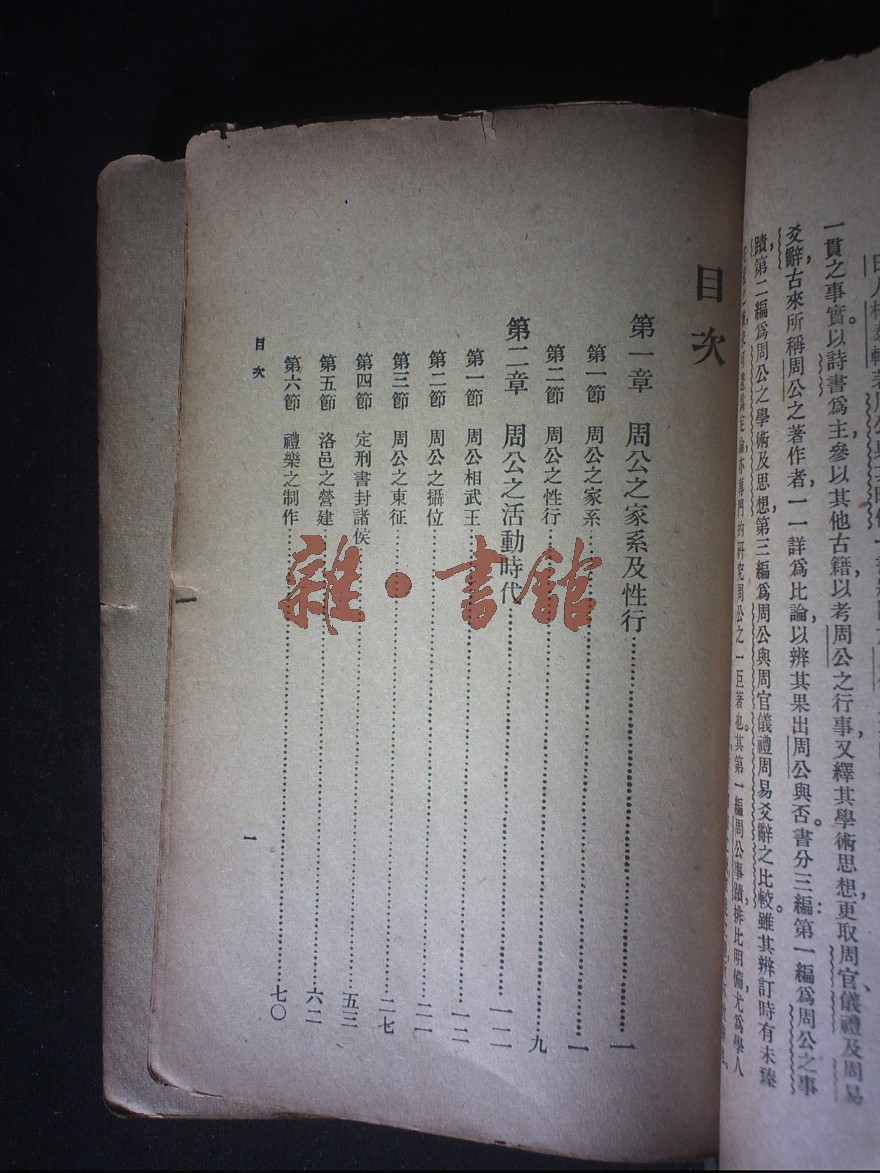 一貫之事實。以詩書爲主,參以其他古籍以考周公之行事,又繹其學術思想,更取周官、儀禮及周易
爻辭,古來所稱周公之著作者,一一詳爲比論以辨其果出周公與否。書分三編:第一編爲周公之事
蹟,第二編爲周公之學術及思想,第三編爲周公與周官儀禮周易爻辭之比較。雖其辨訂時有未臻
專門的研究周公之一巨著也。其第一編周公事蹟,排比明備,尤爲學人
目次
第一章 周公之家系及性行……一
第一節 周公之家系……一
第二節 周公之性行……九
第二章 周公之活動時代……一二
第一節 周公相武王……一二
第二節 周公之攝位……二一
第三節 周公之東征……二七
第四節 定刑書封諸侯……五三
第五節 洛邑之營建……六二
第六節 禮樂之制作……七〇
目次
一
雜·書館